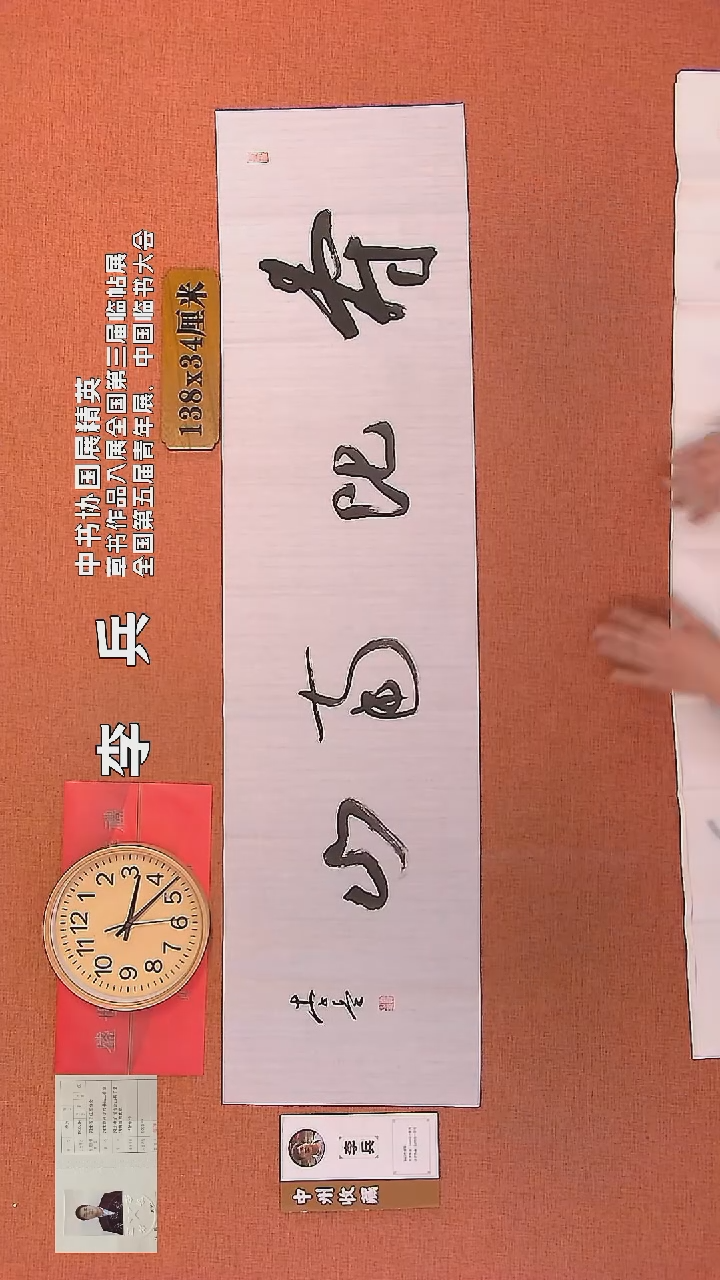 李 兵
中书协国展精英
草书作品入展全国第三届临帖展
全国第五届青年展、中国临书大会
138x34厘米
寿比南山
李兵
12
1
2
3
4
5
6
7
8
9
10
11
李兵
中州收藏